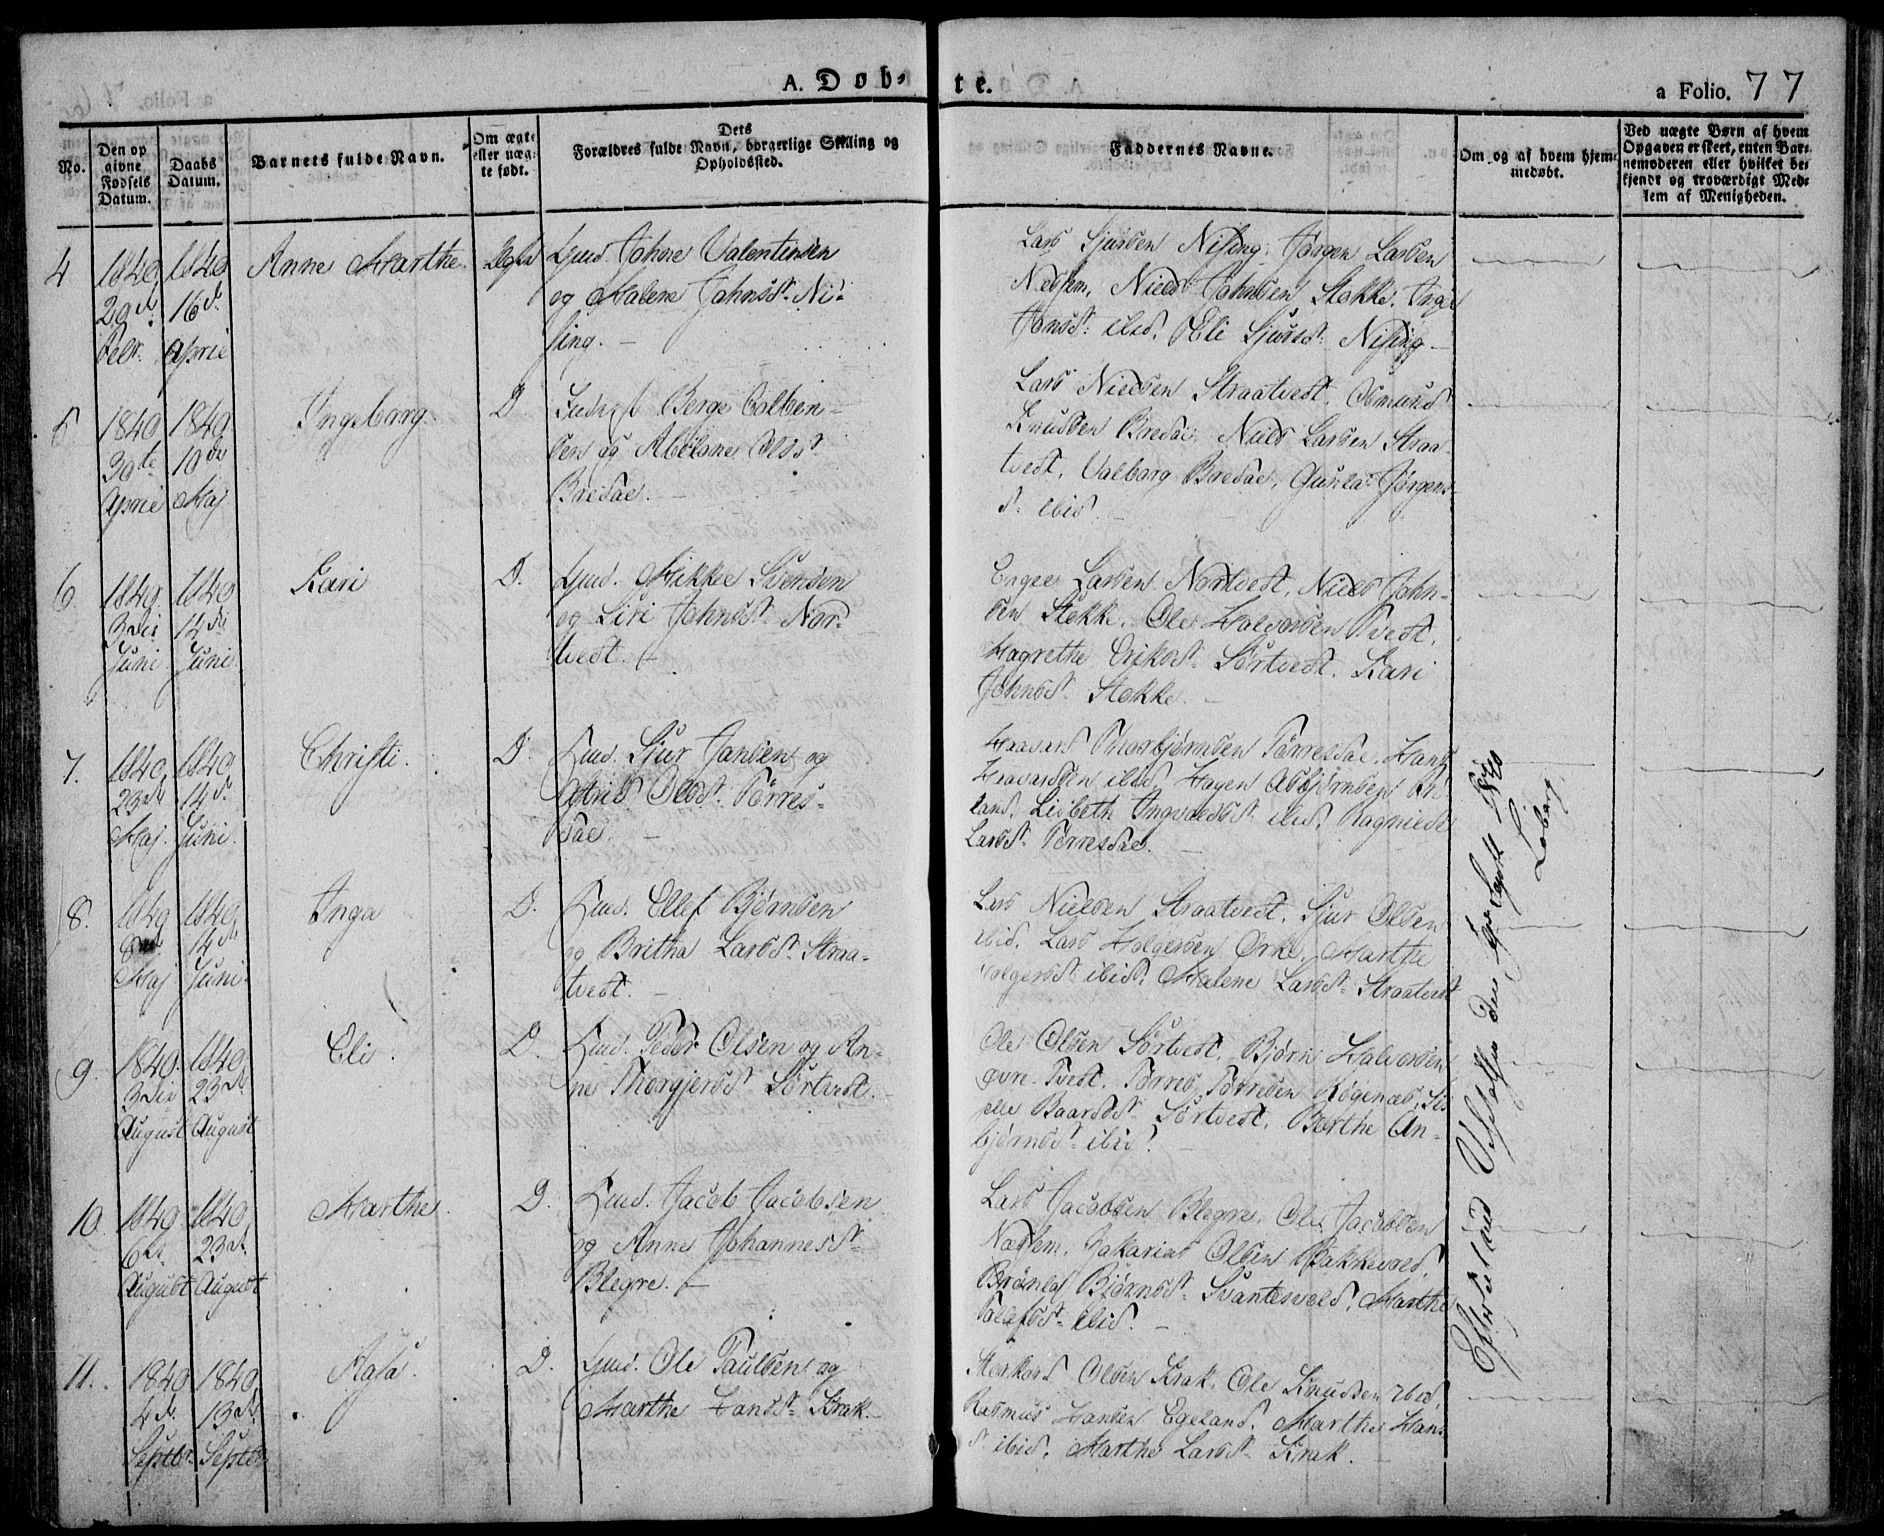 A. Døb-
te.
a Folio. 77
No.
Den op
givne
Fødsels
Datum.
Daabs
Datum.
Barnets fulde Navn.
Om ægte
eller uæg-
te født.
Dets
Forældres fulde Navn, borgerlige Stilling og
Opholdssted.
Faddernes Navne.
Om og af hvem hjem-
medøbt.
Ved uægte Børn af hvem
Opgaven er skeet, enten Bar-
nemoderen eller hvilket be-
kjendt og troværdigt Med-
lem af Menigheden.
4
1840
29de
Febr.
1840
16de
April
Anne Marthe
Ægte
Gmd. Johne Valentinsen
og Malene Johnsd. Ni-
sing.
Lars Sjursen Nising, Jørgen Larsen
Næssem, Niels Johnsen Stokke, Inge
Jonsd: ibid, Eli Sjursd: Nising
5
1840
30te
April
1840
10de
Maj
Ingeborg.
D
Berge Colben-
sen og Abelone Olsd
Bredal.
Lars Nielsen Straatvedt, Osmund
Knudsen Bredal, Niels Larsen Straa-
tvedt, Valborg Bredal, Gunla Jørgens-
d. ibid.
6
1840
3die
Juni
1840
14de
Juni
Kari
D.
Gmd. Mikkel Svensen
og Siri Johnsd. Nor-
tvedt.
Engel Larsen Nortvedt, Niels John-
sen Stokke, Ole Halvorsen Tvedt,
Magrethe Eriksd. Sørtvedt, Kari
Johnsd. Stokke.
7.
1840
23de
Maj
1840
14de
Juni.
Christi.
D.
Gmd. Sjur Jansen og
Astrid Olsd. Tørres-
dal
Haavard Thorbjørnsen Tørresdal, Hans
Haavardsen ibid, Hagen Asbjørnsen
land, Lisbeth Ingvaldsd. ibid, Ragnilde
Larsd. Tørresdal.
8.
1840
Maj
1840
14de
Juni.
Inga
D.
Gmd. Ellef Bjørnsen
og Britha Larsd. Straa-
tvedt.
Lars Nielsen Straatvedt, Sjur Olsen
ibid, Lars Holgersen Ørke, Marthe
Holgersd ibid, Malene Larsd. Straatvedt
9.
1840.
3die
August
1840
23de
August
Eli.
D.
Gmd. Peder Olsen og An-
ne Thorgjersd Sørtvedt.
Ole Olsen Sørtvedt, Bjørn Halvorsen
øvre Tvedt, Tørres Tørresen Røgenæs, Si-
selle Baardsd. Sørtvedt, Berthe An-
bjørnsd. ibid.
10.
1840.
6te
August
1840
23de
August
Marthe.
D.
Gmd. Jacob Jacobsen
og Anne Johannesd.
Blegre.
Lars Jacobsen Blegre, Ole Jacobsen
Næssem, Zakarias Olsen Bakkevold,
Brønla Bjørnsd. Svantesvold, Marthe
ibid.
11.
1840
4de
Septbr
1840
13de
Septbr
Aasa.
D.
Gmd. Ole Paulsen og
Marthe Hansd. Krak.
Størkord Olsen Krak, Ole Knudsen ibid,
Rasmus Hansen Egeland, Marthe Hans-
d. ibid, Marthe Larsd. Krak.
Efterseet ved Visitatsen den
Loberg